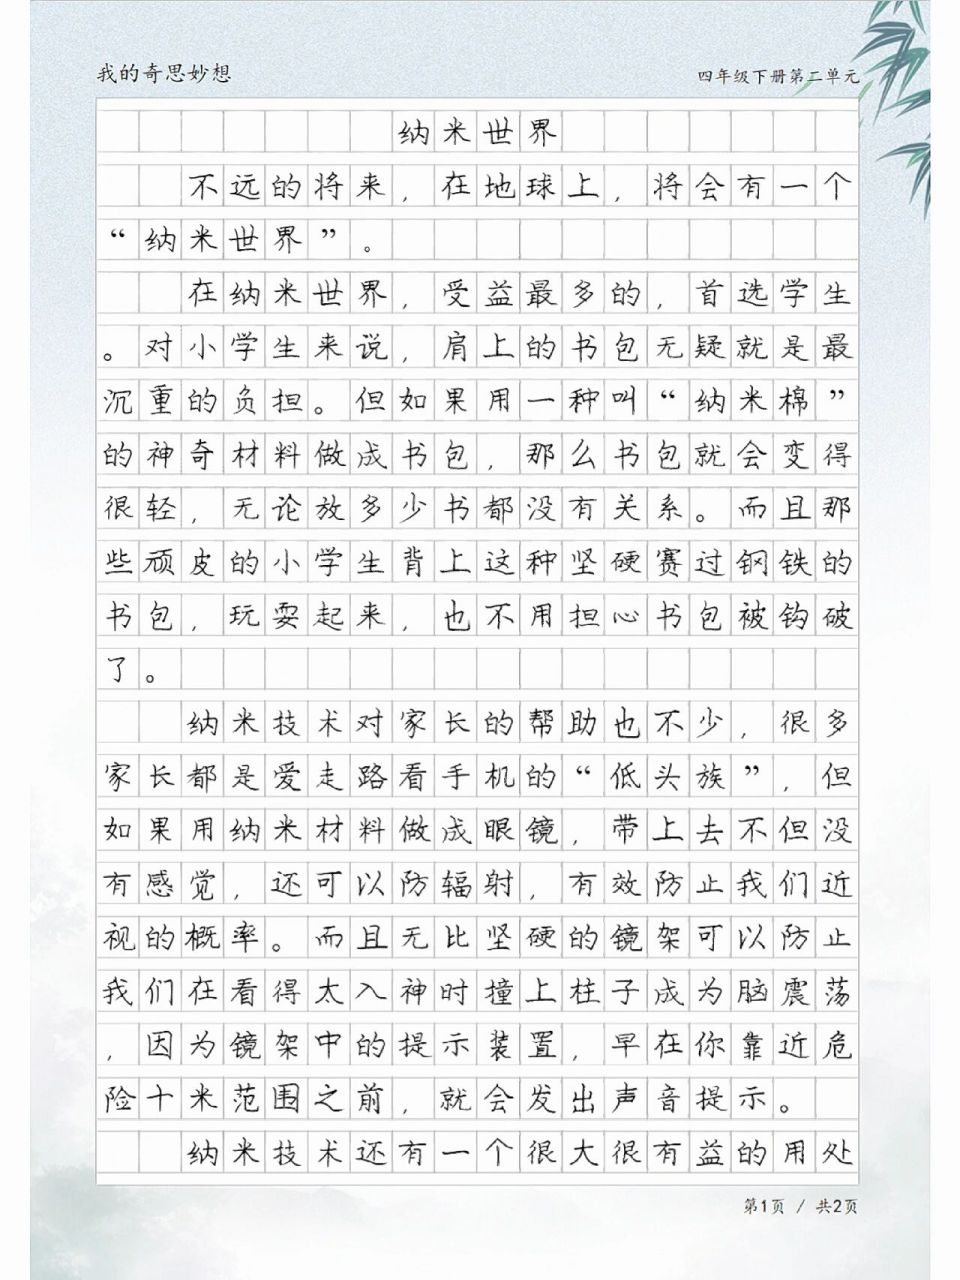 我的奇思妙想
四年级下册第二单元
纳米世界
不远的将来，在地球上，将会有一个
“纳米世界”。
在纳米世界，受益最多的，首选学生
。对小学生来说，肩上的书包无疑就是最
沉重的负担。但如果用一种叫“纳米棉”
的神奇材料做成书包，那么书包就会变得
很轻，无论放多少书都没有关系。而且那
些顽皮的小学生背上这种坚硬赛过钢铁的
书包，玩耍起来，也不用担心书包被钩破
了。
纳米技术对家长的帮助也不少，很多
家长都是爱走路看手机的“低头族”，但
如果用纳米材料做成眼镜，带上去不但没
有感觉，还可以防辐射，有效防止我们近
视的概率。而且无比坚硬的镜架可以防止
我们在看得太入神时撞上柱子成为脑震荡
，因为镜架中的提示装置，早在你靠近危
险十米范围之前，就会发出声音提示。
纳米技术还有一个很大很有益的用处
第1页 / 共2页